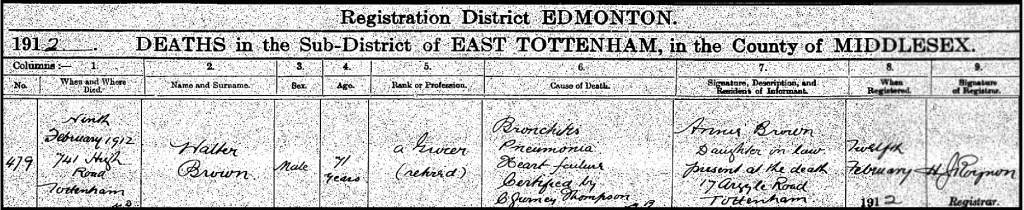 Registration District EDMONTON.
1912. DEATHS in the Sub-District of EAST TOTTENHAM, in the County of MIDDLESEX.
Columns :— 1. 2. 3. 4. 5. 6. 7. 8. 9.
No. When and Where Died. Name and Surname. Sex. Age. Rank or Profession. Cause of Death. Signature, Description, and Residence of Informant. When Registered. Signature of Registrar.
479
Ninth
February 1912
741 High
Road
Tottenham
Walter
Brown
Male
71
years
a Grocer
(retired)
Bronchitis
Pneumonia
Heart failure
Certified by
Gurney Thompson
Annie Brown
Daughter in law
present at the death
17 Argyle Road
Tottenham
Twelfth
February
1912
Registrar.